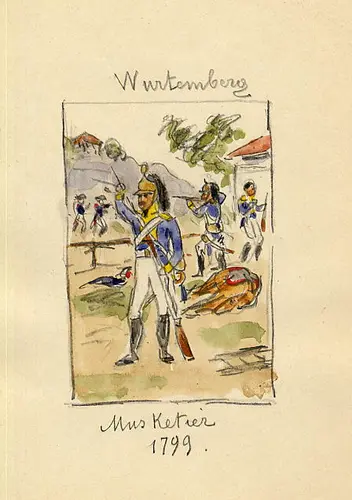 Wurtemberg
Musketier
1799.